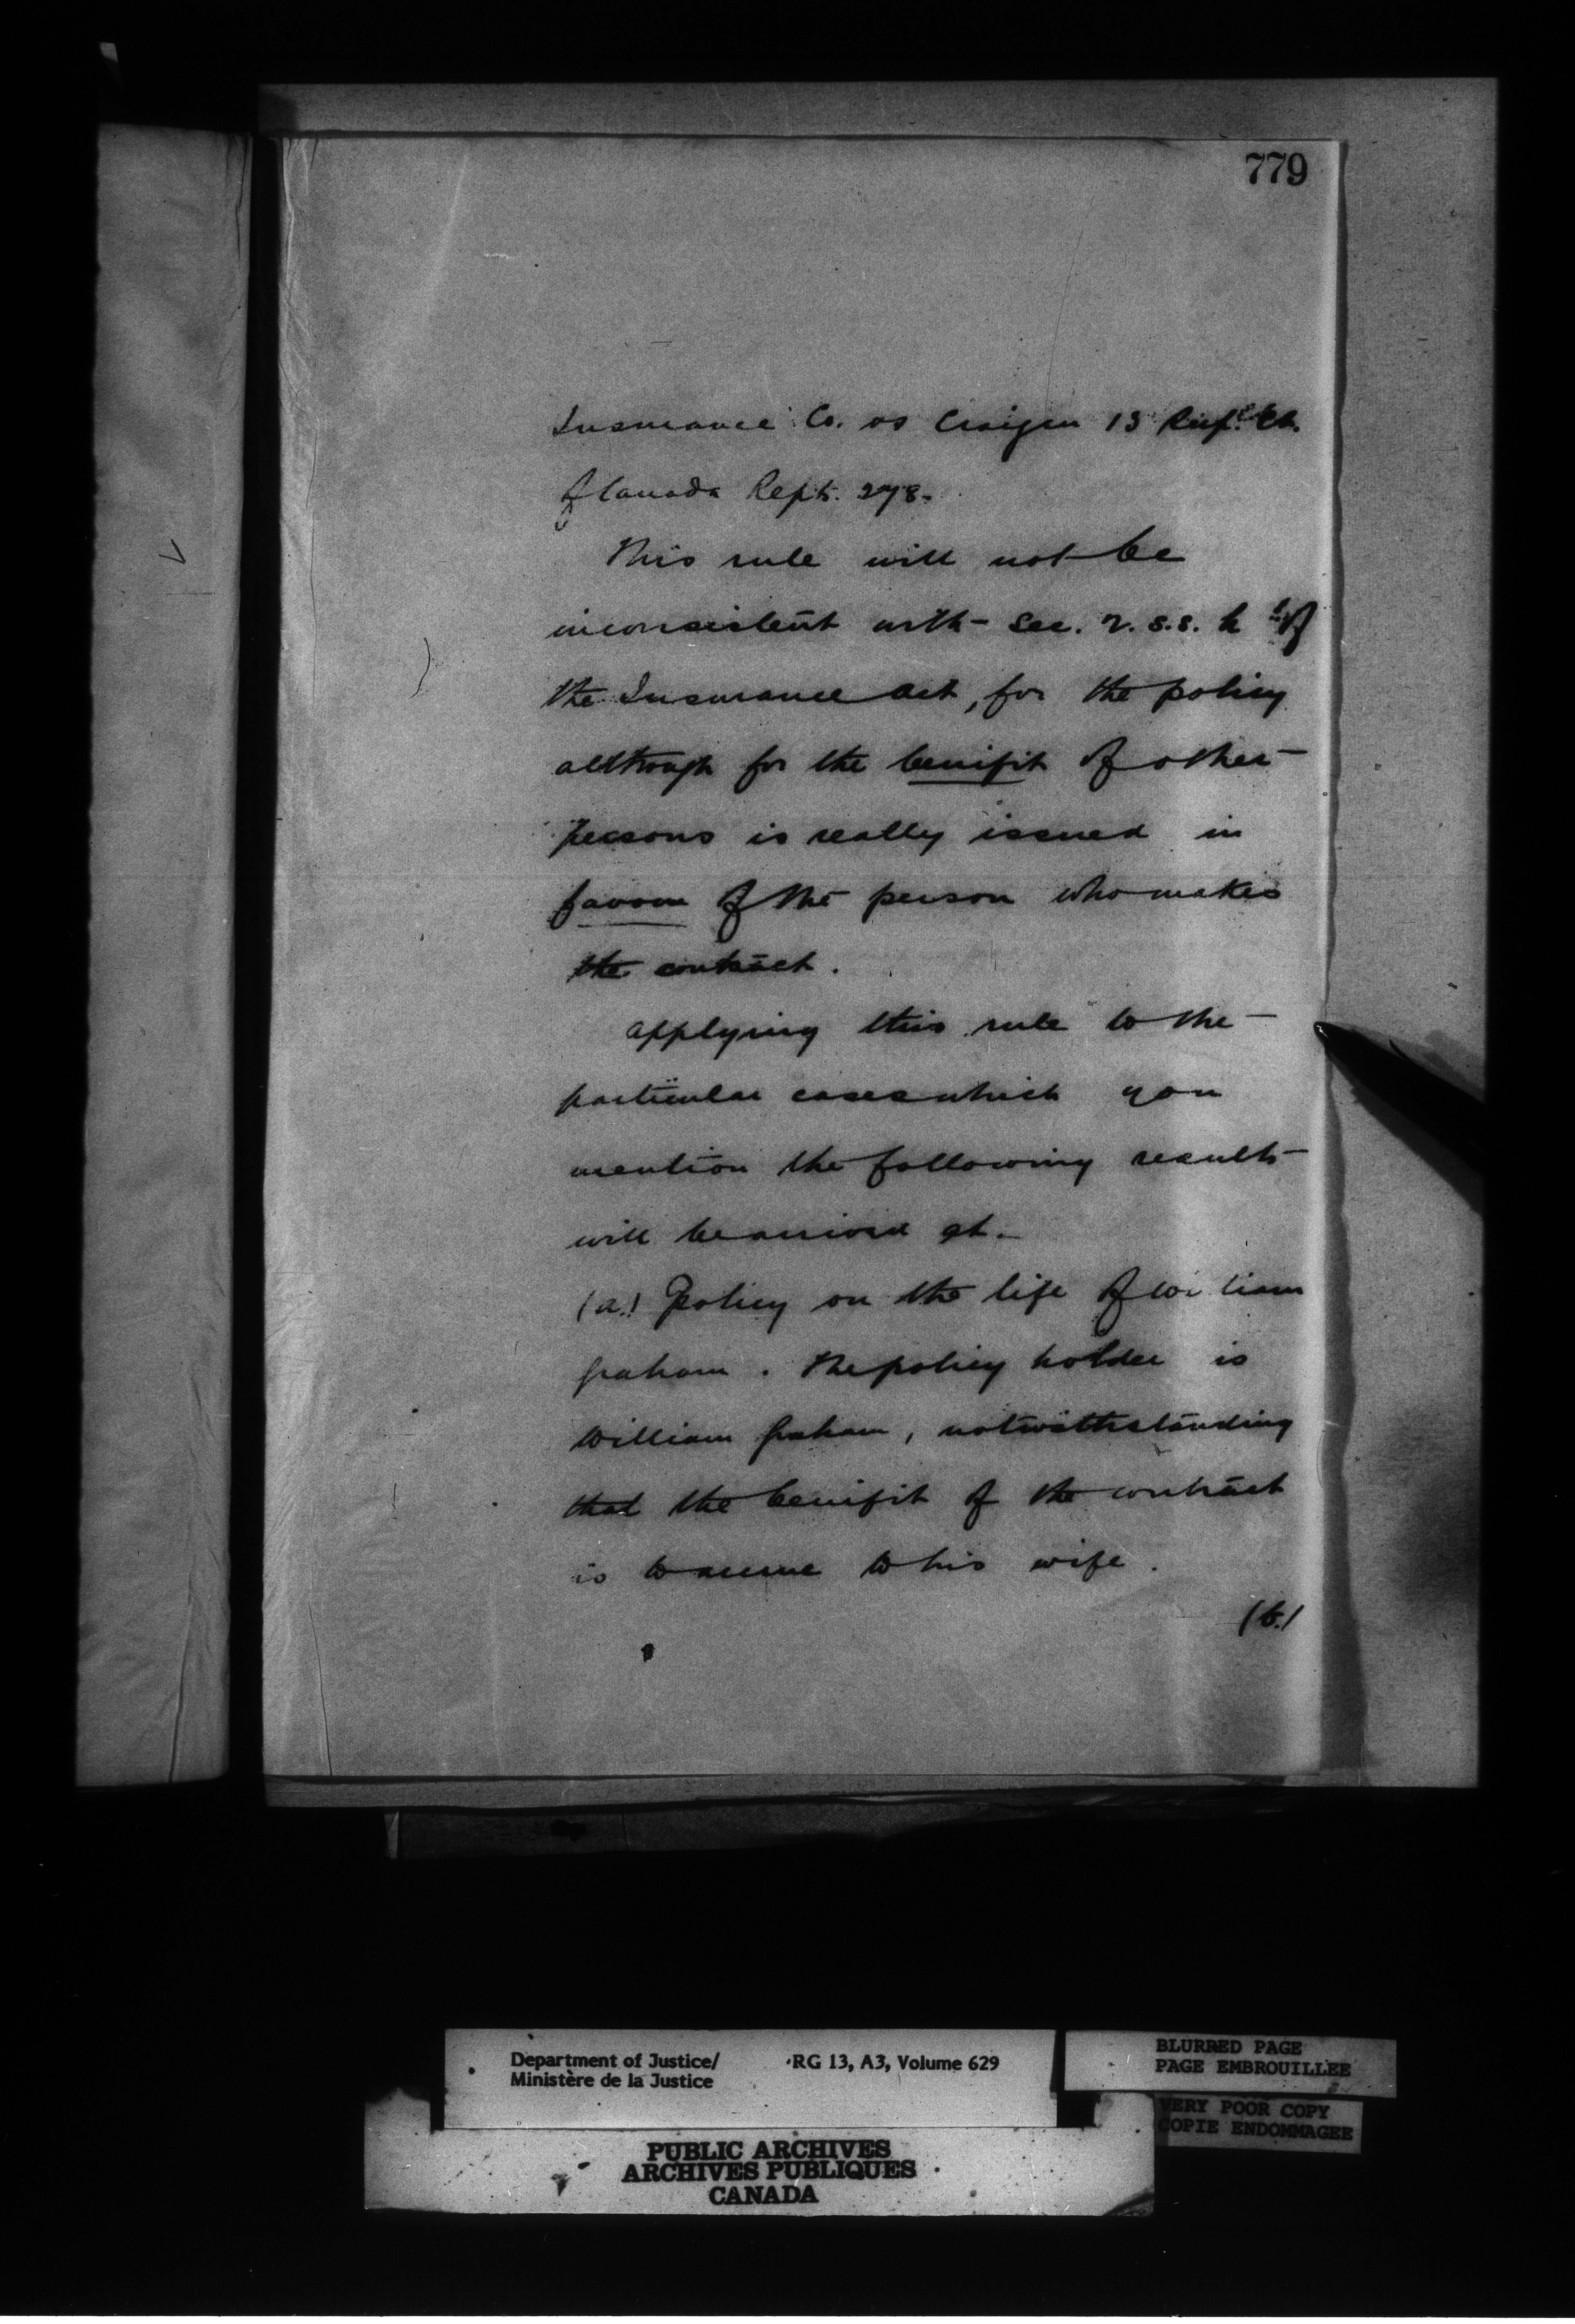 779
Insurance Co. vs Craigen 13 Sup. Ct.
of Canada Repts. 278.
This rule will not be
inconsistent with Sec. 2. s.s. h of
the Insurance Act, for the policy
although for the benifit of other
persons is really issued in
favour of the person who makes
the contract.
Applying this rule to the
particular cases which you
mention the following results
will be arrived at.
(a.) Policy on the life of William
Graham. The policy holder is
William Graham, notwithstanding
that the benifit of the contract
is to accrue to his wife.
(b.)
Department of Justice/ RG 13, A3, Volume 629
Ministère de la Justice
BLURRED PAGE
PAGE EMBROUILLEE
VERY POOR COPY
COPIE ENDOMMAGEE
PUBLIC ARCHIVES
ARCHIVES PUBLIQUES
CANADA